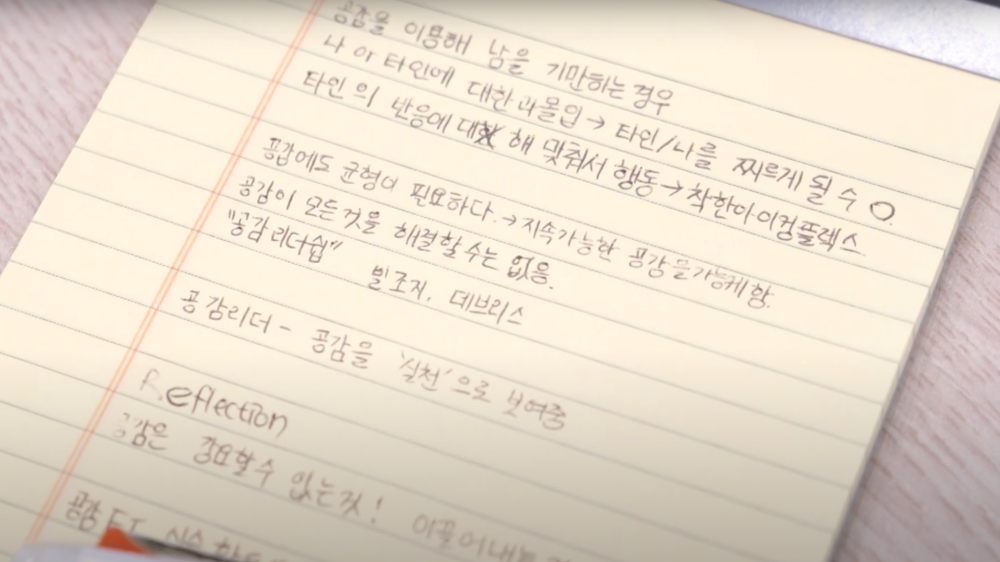 공감을 이용해 남을 기만하는 경우
나 아 타인에 대한 과몰입 → 타인/나를 찌르게 될 수 O
타인의 반응에 대 해 맞춰서 행동 → 착한아이컴플렉스
공감에도 균형이 필요하다. → 지속가능한 공감을 가능케함.
공감이 모든것을 해결할 수는 없음.
"공감리더쉽"
빌조지, 데브리스
공감리더 - 공감을 '실천'으로 보여줌
Reflection
공감은 강요할 수 없는것! 이끌어내는
공감 도